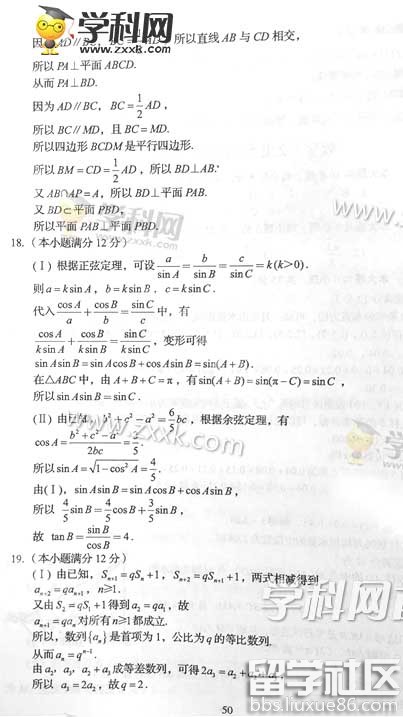 学科网
www.zxxk.com
因为AD∥BC, BC=1/2AD, 所以直线 AB 与 CD 相交,
所以 PA⊥平面 ABCD.
从而 PA⊥BD.
因为 AD∥BC, BC=1/2AD,
所以 BC∥MD, 且 BC=MD.
所以四边形 BCDM 是平行四边形.
所以 BM=CD=1/2AD, 所以 BD⊥AB.
又 AB∩AP=A, 所以 BD⊥平面 PAB.
又 BD⊂平面 PBD,
所以平面 PAB⊥平面 PBD.
18. (本小题满分 12 分)
(Ⅰ) 根据正弦定理, 可设 a/sin A = b/sin B = c/sin C = k(k>0).
则 a=k sin A, b=k sin B, c=k sin C.
代入 cos A/a + cos B/b = sin C/c 中, 有
cos A/(k sin A) + cos B/(k sin B) = sin C/(k sin C), 变形可得
sin A sin B=sin A cos B+cos A sin B=sin(A+B).
在△ABC 中, 由 A+B+C=π, 有 sin(A+B)=sin(π-C)=sin C,
所以 sin A sin B=sin C.
(Ⅱ) 由已知, b²+c²-a²=6/5bc, 根据余弦定理, 有
cos A=(b²+c²-a²)/2bc=3/5.
所以 sin A=√(1-cos²A)=4/5.
由(Ⅰ), sin A sin B=sin A cos B+cos A sin B,
所以 4/5 sin B=4/5 cos B+3/5 sin B,
故 tan B=sin B/cos B=4.
19. (本小题满分 12 分)
(Ⅰ) 由已知, Sₙ₊₁=qSₙ+1, Sₙ₊₂=qSₙ₊₁+1, 两式相减得到
aₙ₊₂=qaₙ₊₁, n≥1.
又由 S₂=qS₁+1 得到 a₂=qa₁, 故
aₙ₊₁=qaₙ 对所有 n≥1 都成立.
所以, 数列{aₙ}是首项为 1, 公比为 q 的等比数列.
从而 aₙ=qⁿ⁻¹.
由 a₂, a₃, a₂+a₃ 成等差数列, 可得 2a₃=a₂+a₂+a₃,
所以 a₃=2a₂, 故 q=2.
50
学科网
www.zxxk.com
www.zxxk
学科网
留学社区
bbs.liuxue86.com